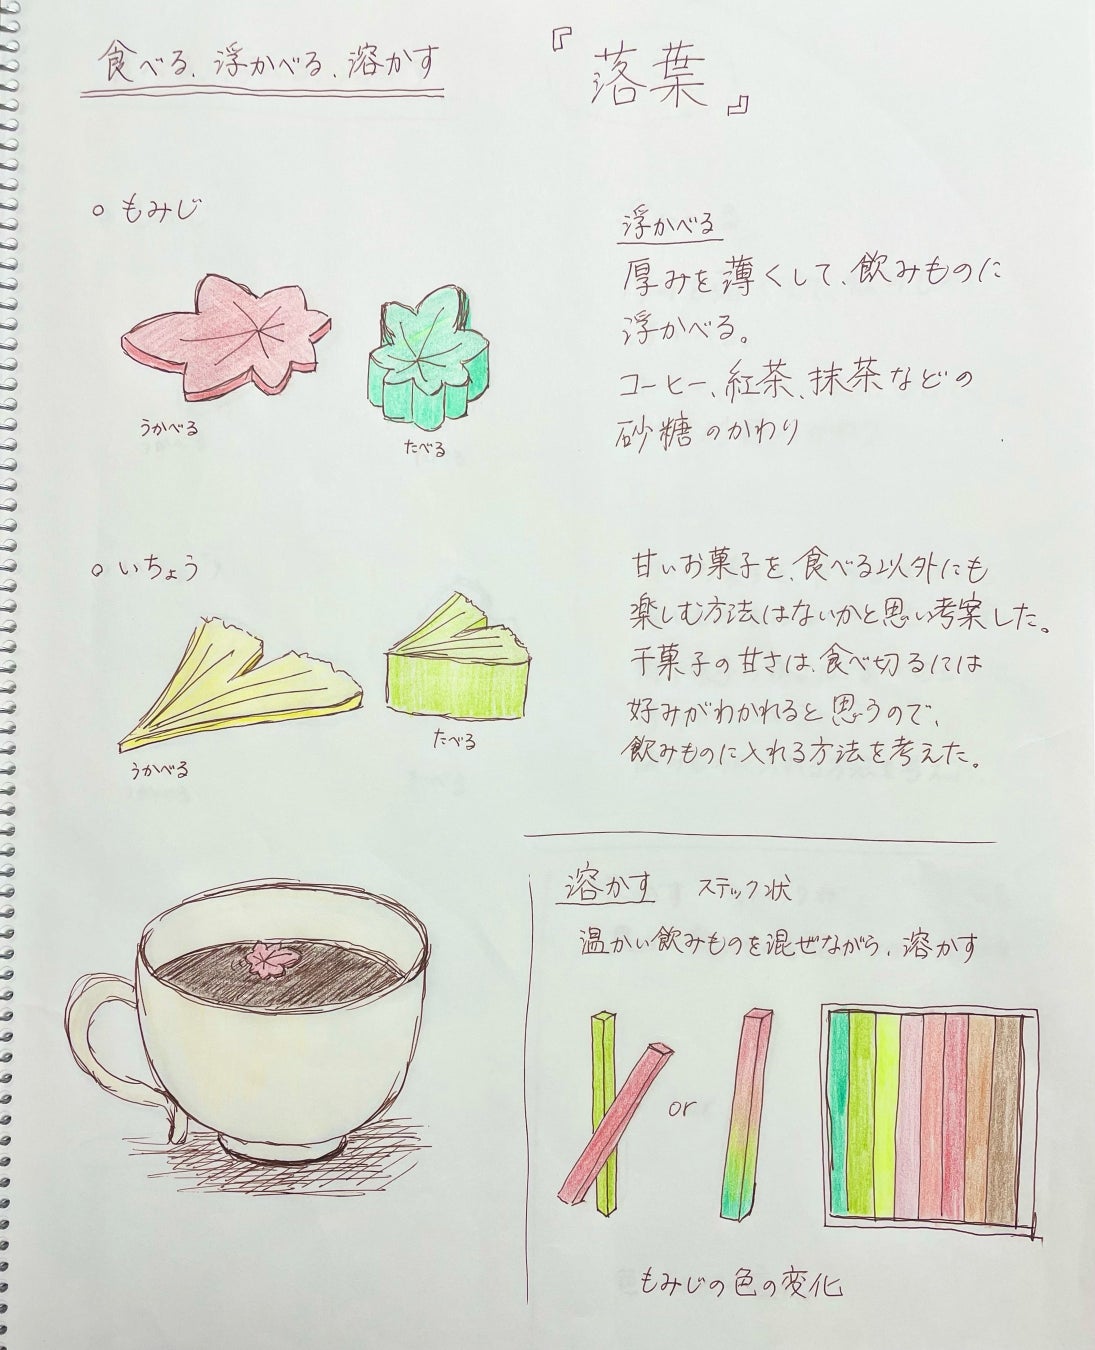 食べる、浮かべる、溶かす
『落葉』
○ もみじ
うかべる
たべる
浮かべる
厚みを薄くして、飲みものに
浮かべる。
コーヒー、紅茶、抹茶などの
砂糖のかわり
○ いちょう
うかべる
たべる
甘いお菓子を、食べる以外にも
楽しむ方法はないかと思い考案した。
干菓子の甘さは、食べ切るには
好みがわかれると思うので、
飲みものに入れる方法を考えた。
溶かす ステック状
温かい飲みものを混ぜながら、溶かす
or
もみじの色の変化